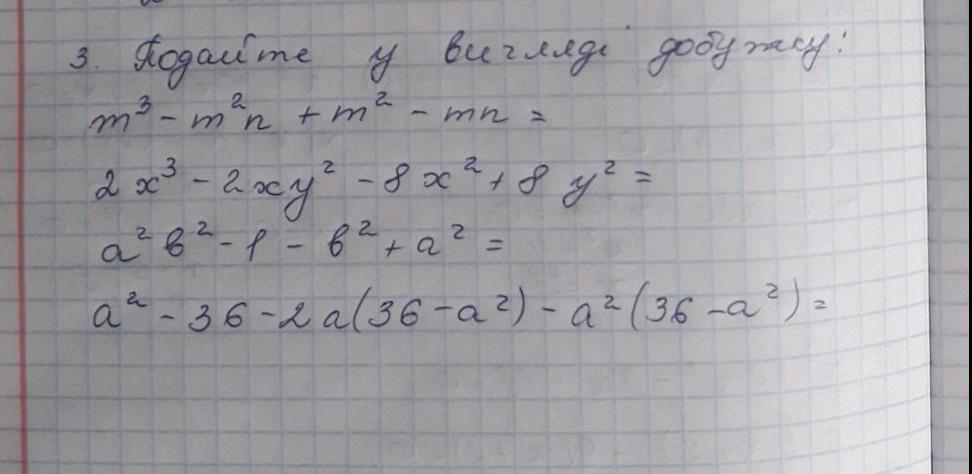 3. Подайте у вигляді добутку:
m³ - m²n + m² - mn =
2x³ - 2xy² - 8x² + 8y² =
a²b² - 1 - b² + a² =
a² - 36 - 2a(36 - a²) - a²(36 - a²) =